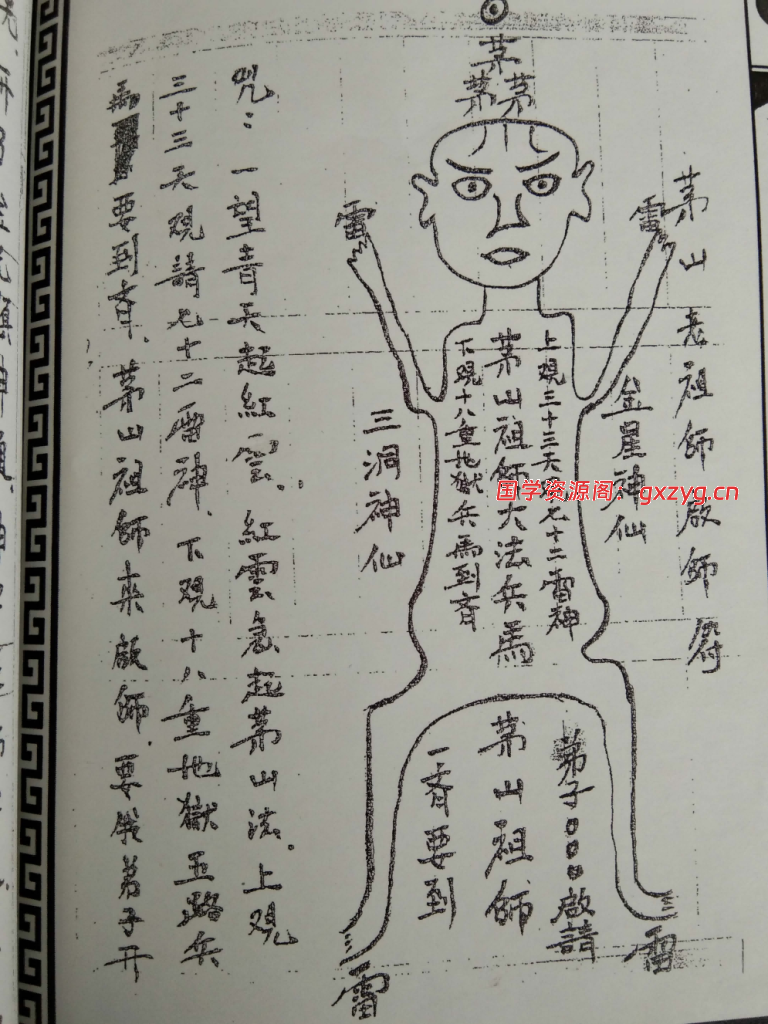 茅山老祖師啟師符
茅
茅茅
雷
雷
金星神仙
三洞神仙
上觀三十三天觀七十二雷神
茅山祖師大法兵馬
下觀十八重地獄兵馬到齊
弟子〇〇〇啟請
茅山祖師
一齊要到
雷
雷
咒：一望青天起紅雲．紅雲裊起茅山法．上觀
三十三天觀請七十二雷神．下觀十八重地獄五路兵
馬要到齊．茅山祖師來啟師．要俄弟子开
国学资源阁：gxzyg.cn